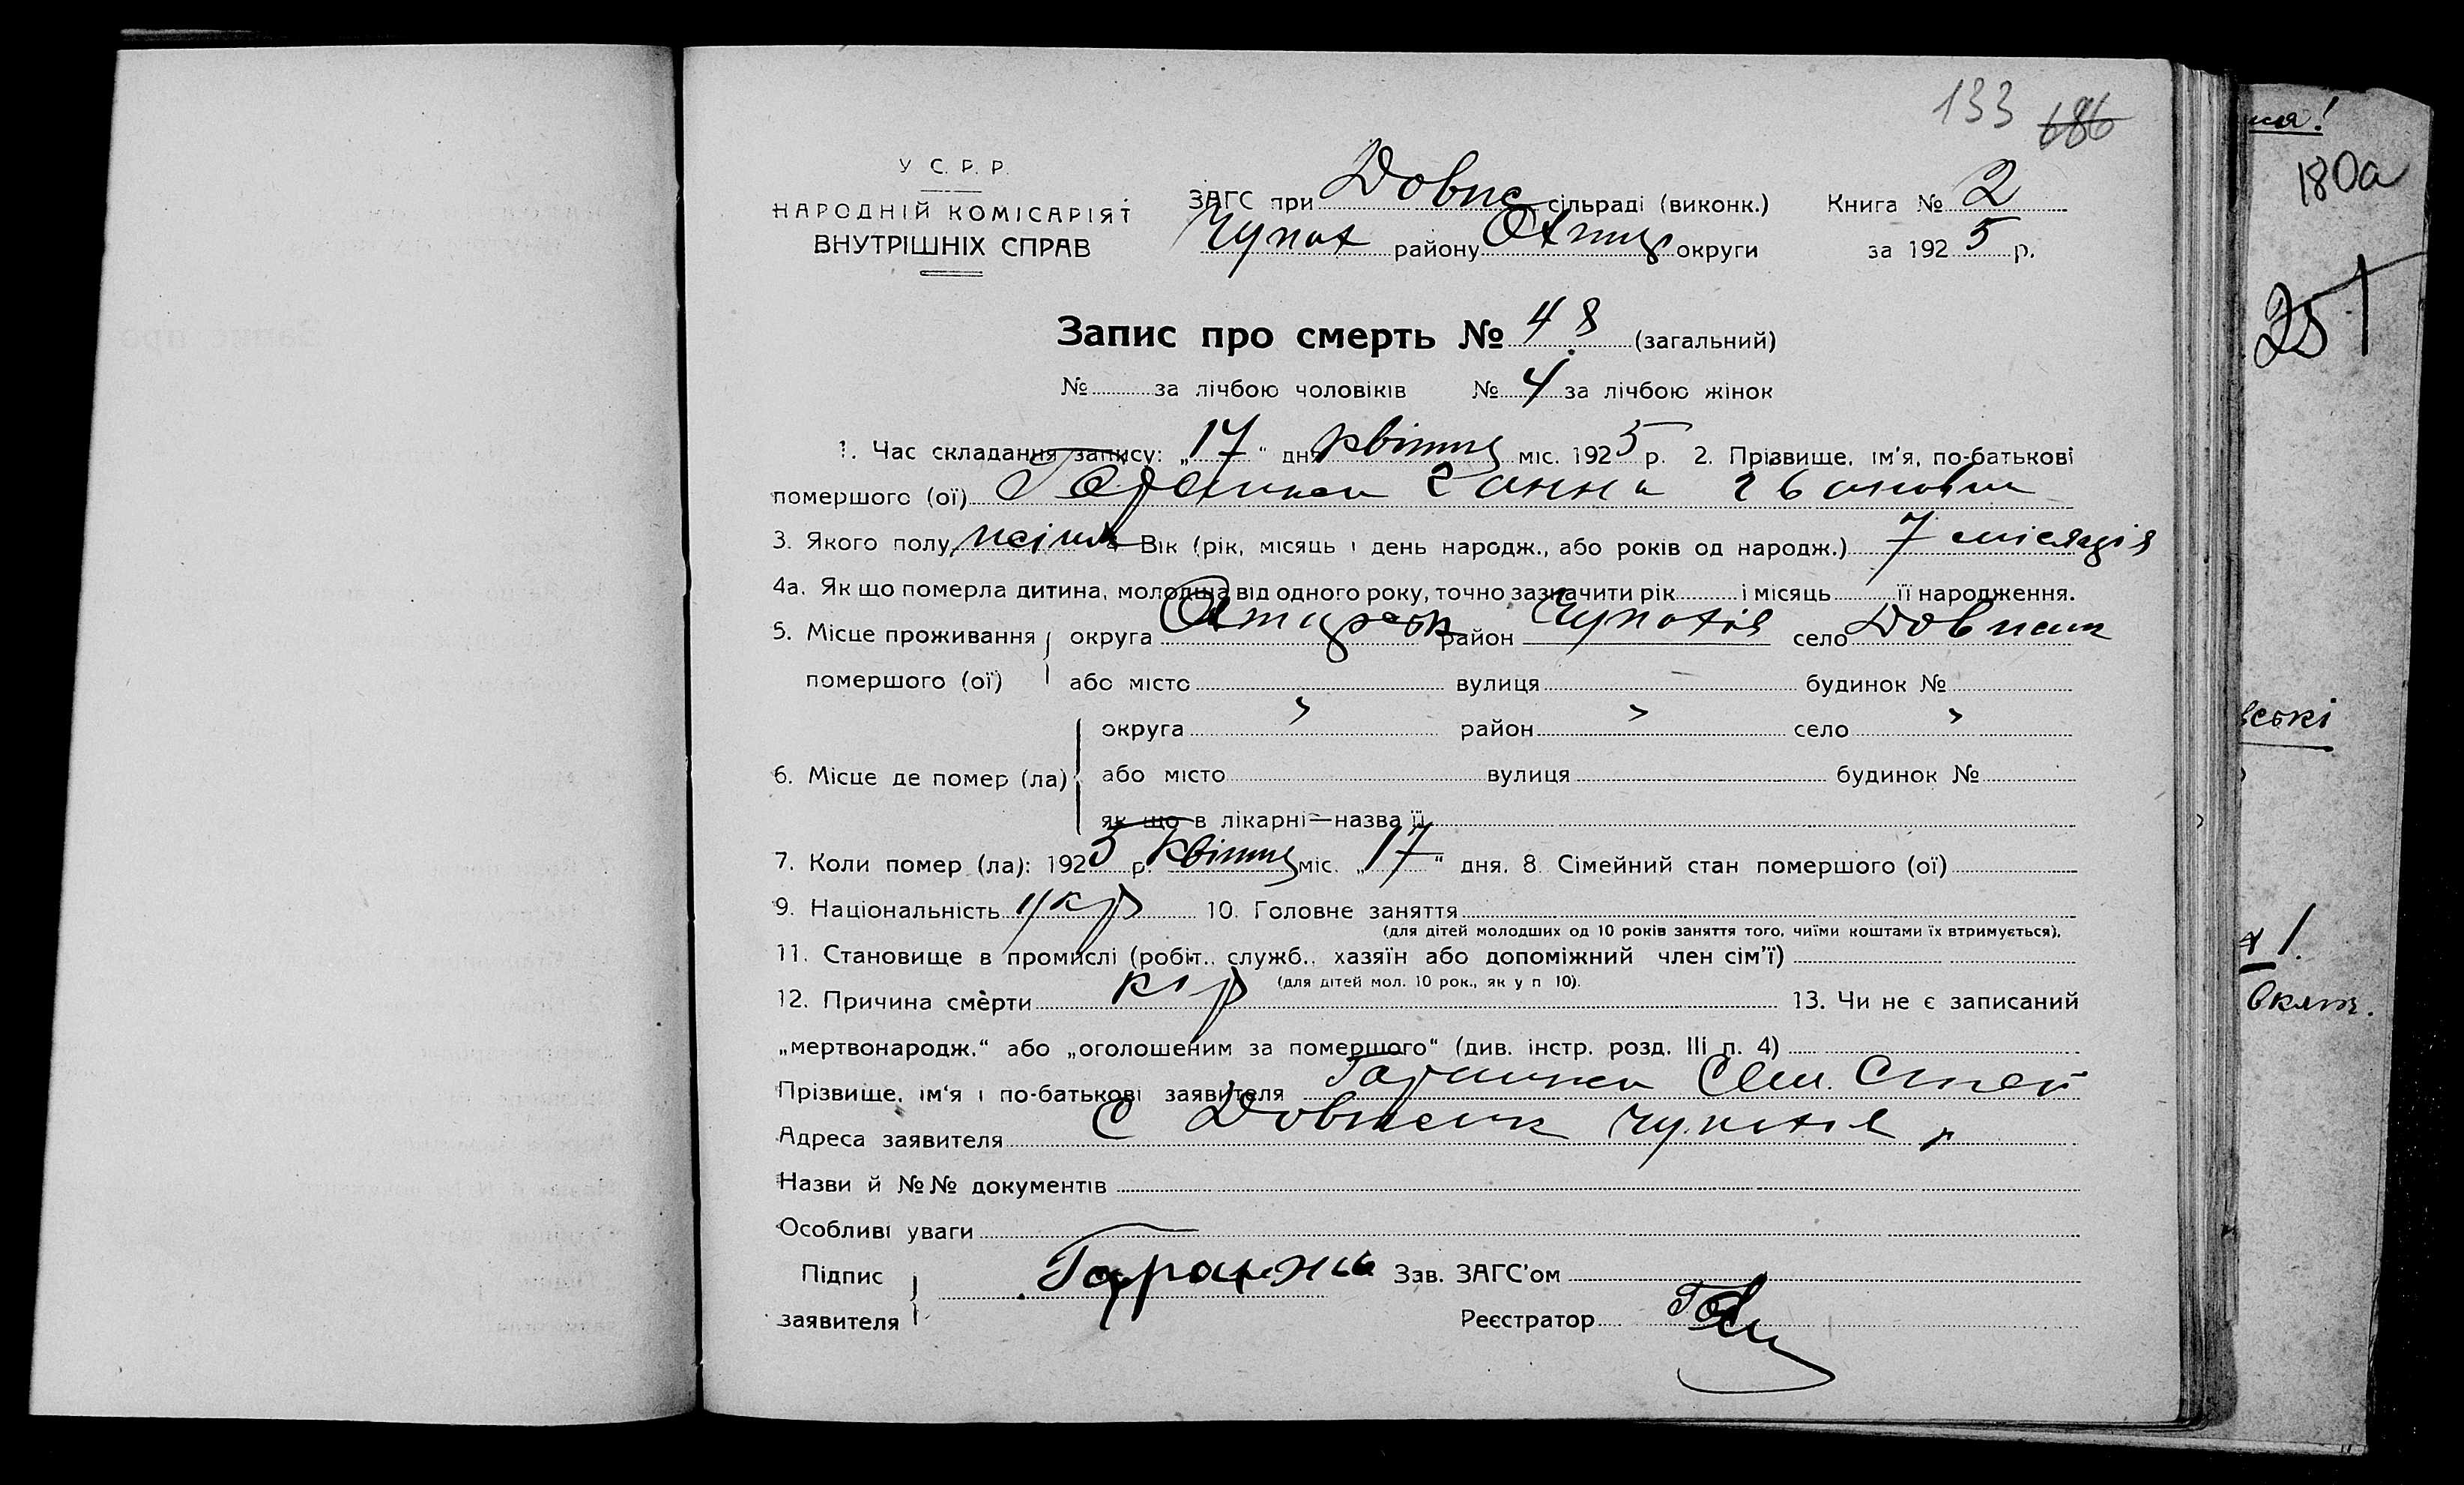 133 686
У С. Р. Р.
НАРОДНІЙ КОМІСАРІЯТ
ВНУТРІШНІХ СПРАВ
ЗАГС при Довж сільраді (виконк.) Книга № 2
Чупах району Охтир округи за 1925 р.
Запис про смерть № 48 (загальний)
№ за лічбою чоловіків № 4 за лічбою жінок
1. Час складання запису: „17“ дня квітня міс. 1925 р. 2. Прізвище, ім'я, по-батькові
помершого (ої) Гаранжа Ганна Івановна
3. Якого полу жіноч 4 Вік (рік, місяць і день народж., або років од народж.) 7 місяців
4а. Як що померла дитина, молодша від одного року, точно зазначити рік і місяць її народження.
5. Місце проживання округа Охтирськ район Чупахів село Довжик
помершого (ої) або місто вулиця будинок №
округа " район " село "
6. Місце де помер (ла) або місто вулиця будинок №
як що в лікарні—назва її
7. Коли помер (ла): 1925 р. квітня міс. „17“ дня. 8. Сімейний стан помершого (ої)
9. Національність укр 10. Головне заняття
(для дітей молодших од 10 років заняття того, чиїми коштами їх втримується).
11. Становище в промислі (робіт., служб., хазяїн або допоміжний член сім'ї)
(для дітей мол. 10 рок., як у п 10).
12. Причина смерти кір 13. Чи не є записаний
„мертвонародж.“ або „оголошеним за помершого“ (див. інстр. розд. III п. 4)
Прізвище, ім'я і по-батькові заявителя Гаранжа
Адреса заявителя С Довжик Чупахів р
Назви й №№ документів
Особливі уваги
Підпис Гаранжа Зав. ЗАГС'ом
заявителя Реєстратор
180а
251
ські
1.